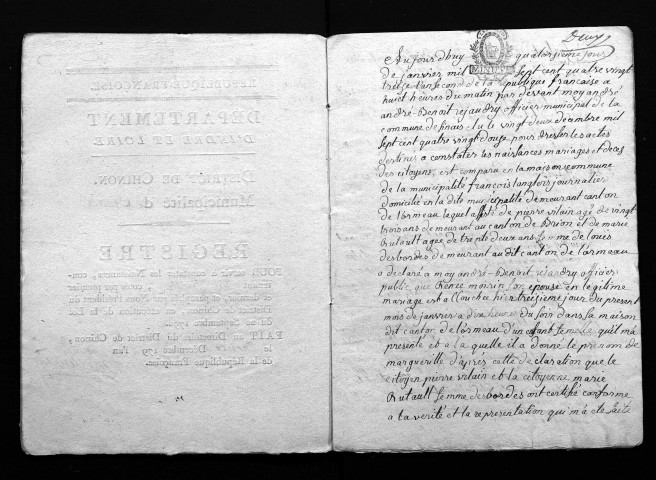 RÉPUBLIQUE FRANÇOISE.
DÉPARTEMENT
D'INDRE ET LOIRE
DISTRICT DE CHINON.
Municipalité d
REGISTRE
POUR servir à constater les Naissances, con-
tenant feuillets, cotés par premier
et dernier, et paraphés par Nous Président du
District de Chinon, en exécution de la Loi
du 20 Septembre 1792.
FAIT au Directoire du District de Chinon,
le Décembre 179 l'an
de la République Françoise.
Deux
Aujourdhuy quatorzieme jour
de janvier mil sept cent quatre vingt
treize l'an second de la republique francaise a
huit heures du matin par devant moy andré
andré-Benoit rejaudry officier municipal de la
commune de Sinais elu le vingt deux decembre mil
sept cent quatre vingt douze pour dresser les actes
destines a constater les naissances mariages et deces
des citoyens, est comparu en la maison commune
de la municipalité francois langlois journalier
domicilié en la dite municipalité demeurant canton
de lormeau lequel assisté de pierre vilain agé de vingt
trois ans demeurant au canton de Brion et de marie
Rutault agee de trente deux ans femme de louis
desbordes demeurant au dit canton de lormeau
a déclaré a moy andré-Benoit rejaudry officier
public que Renée moirin son epouse en legitime
mariage est accouchée hier treizieme jour du present
mois de janvier a dix heures du soir dans sa maison
dit canton de lormeau d'un enfant femelle qu'il m'a
presenté et a la quelle il a donné le prenom de
margueritte d'après cette declaration que le
citoyen pierre vilain et la citoyenne marie
Rutault femme desbordes ont certifié conforme
a la verité et la representation qui m'a été faite